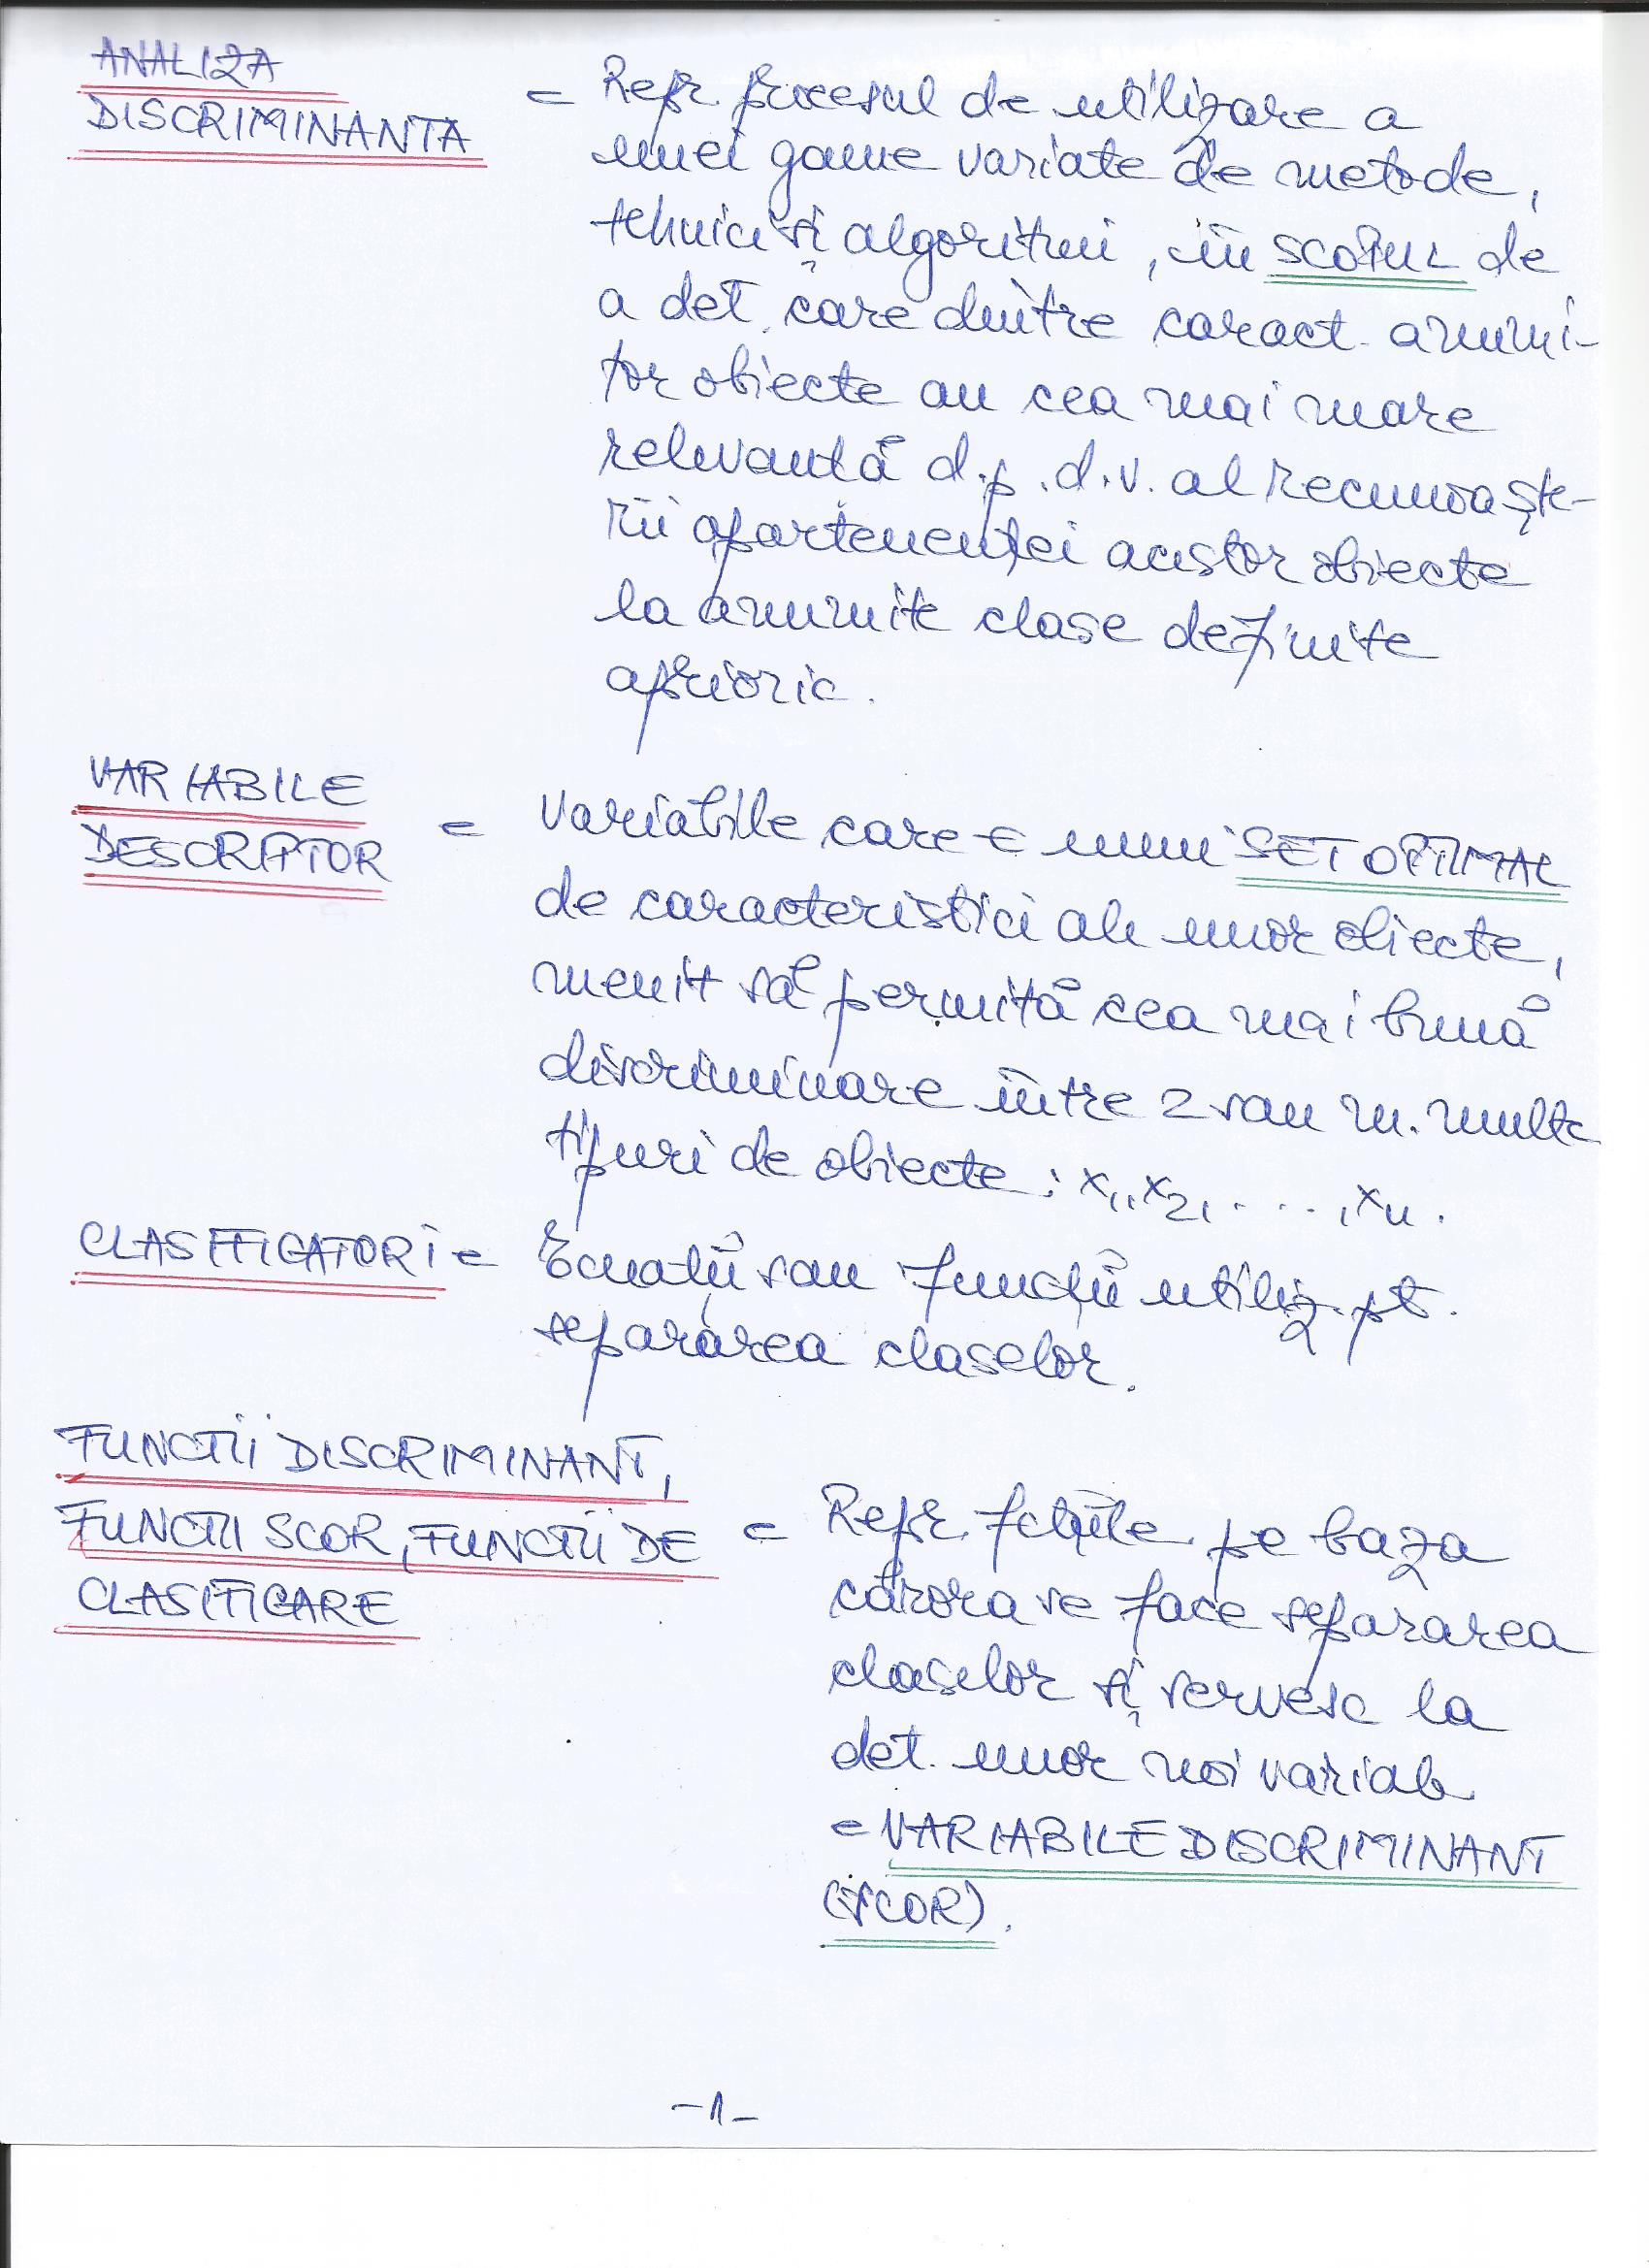 ANALIZA
DISCRIMINANTA = Repr. procesul de utilizare a
unei game variate de metode,
tehnici și algoritmi, în SCOPUL de
a det. care dintre caract. anumi-
tor obiecte au cea mai mare
relevantă d.p.d.v. al recunoaște-
rii apartenenței acestor obiecte
la anumite clase definite
aprioric.
VARIABILE
DESCRIPTOR = Variabile care ∈ unui SET OPTIMAL
de caracteristici ale unor obiecte,
menit să permită cea mai bună
discriminare între 2 sau m. multe
tipuri de obiecte: x1, x2, ..., xn.
CLASIFICATORI = Ecuații sau funcții utiliz. pt.
separarea claselor.
FUNCTII DISCRIMINANT,
FUNCTII SCOR, FUNCTII DE = Repr. fcțiile pe baza
CLASIFICARE cărora se face separarea
claselor și servesc la
det. unor noi variab.
= VARIABILE DISCRIMINANT
(SCOR).
-1-